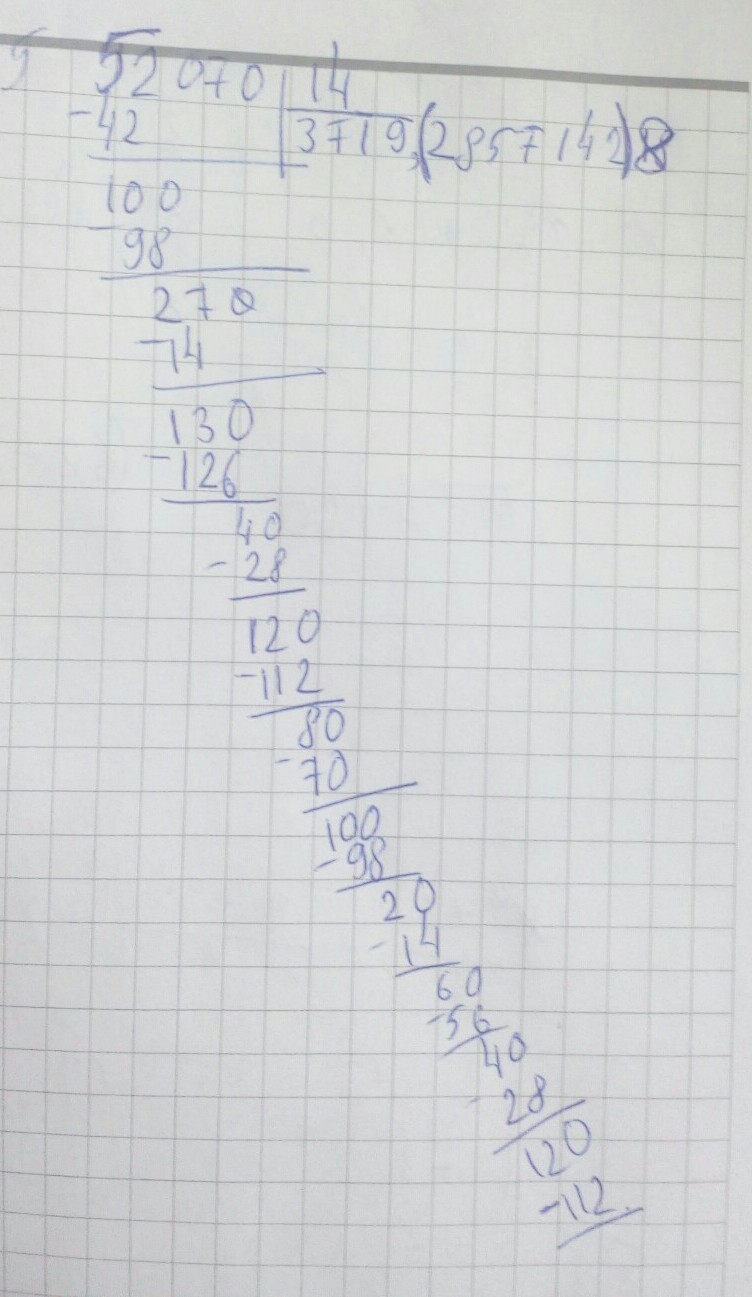 5 52070 14
-42 3719,(2857142)8
100
-98
270
-14
130
-126
40
-28
120
-112
80
-70
100
-98
20
-14
60
-56
40
-28
120
-112